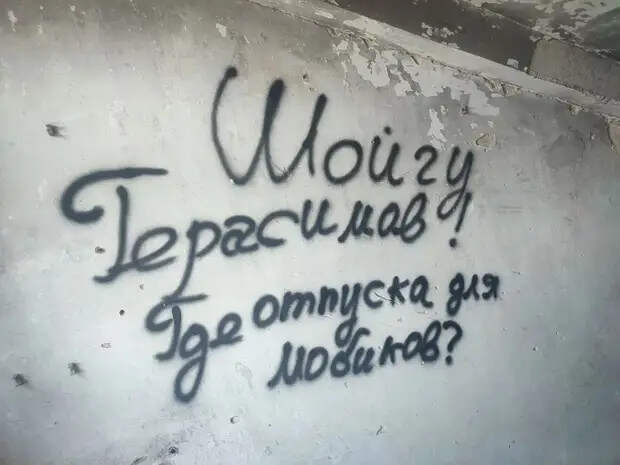 Шойгу
Герасимов!
Где отпуска для
мобиков?